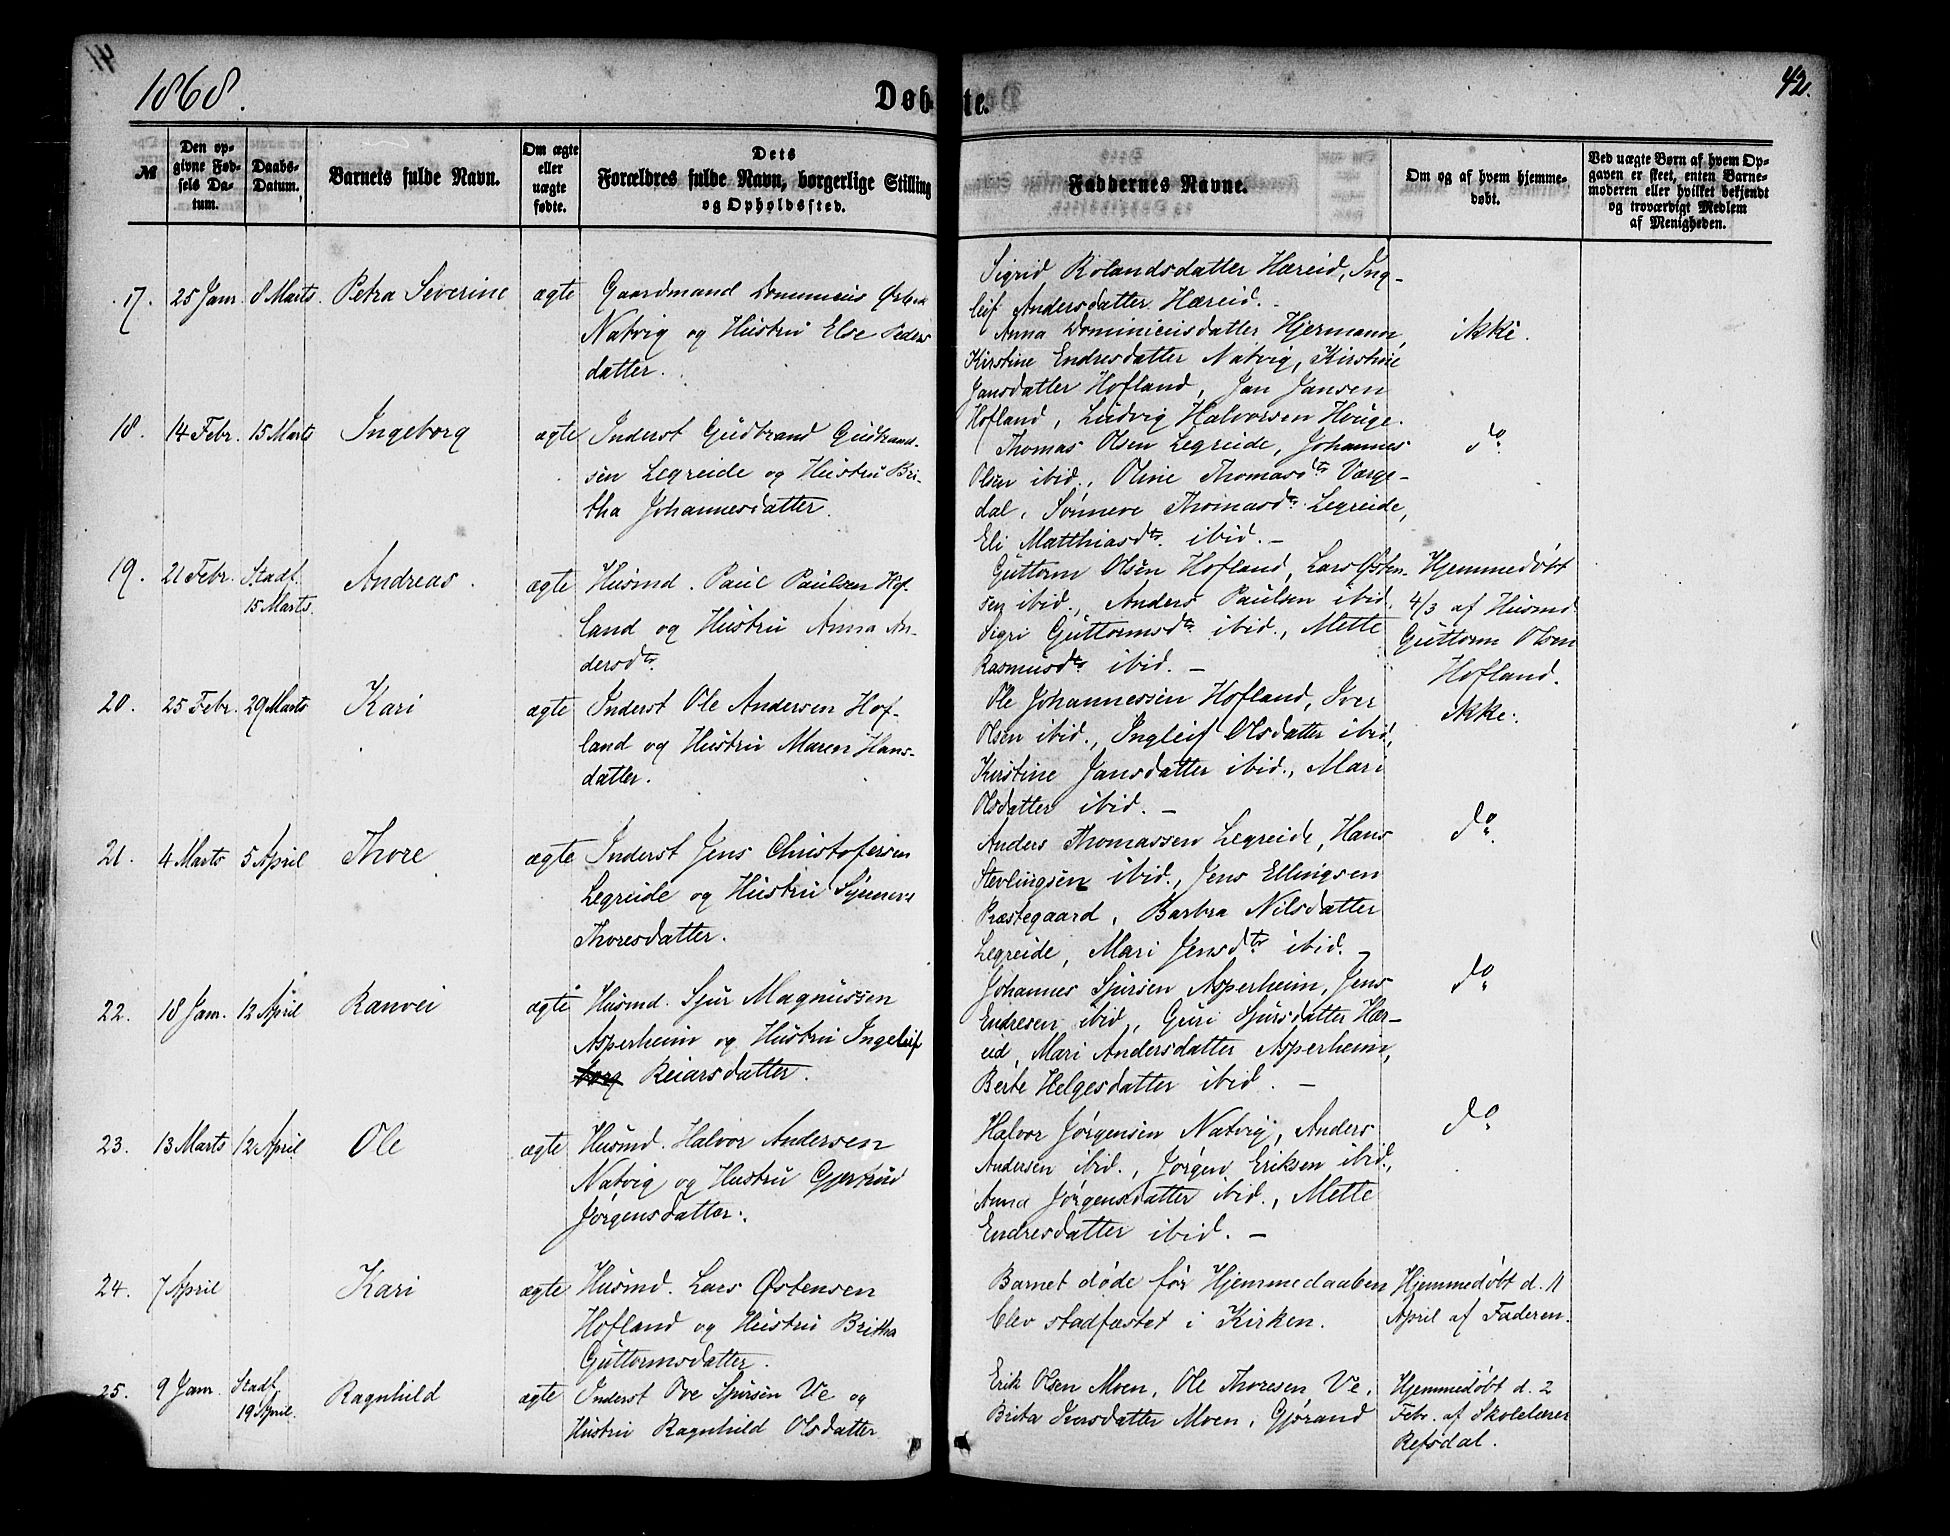 1868.
Døbte.
42.
№
Den opgivne Fødsels Datum.
Daabs-Datum.
Barnets fulde Navn.
Om ægte eller uægte fødte.
Dets Forældres fulde Navn, borgerlige Stilling og Opholdssted.
Faddernes Navne.
Om og af hvem hjemmedøbt.
Ved uægte Børn af hvem Opgaven er skeet, enten Barnemoderen eller hvilket bekjendt og troværdigt Medlem af Menigheden.
Sigrid Rolandsdatter Hæreid, Ing-
leif Andersdatter Hæreid.
17. 25 Janr. 8 Marts Petra Severine ægte Gaardmand Dominicus
Natvig og Hustru Else Peders
datter.
Anna Dominicusdatter Hjermann,
Kirstine Endresdatter Natvig, Kirstine
Jansdatter Hofland, Jan Jansen
Hofland, Ludvig Halvorsen Houge.
ikke.
18. 14 Febr. 15 Marts Ingeborg ægte Inderst Gudbrand Gudbrand-
sen Legreide og Hustru Bri-
tha Johannesdatter.
Thomas Olsen Legreide, Johannes
Olsen ibid., Oline Thomasdtr Varge-
dal, Sønneve Thomasdtr Legreide,
Eli Matthiasdtr. ibid. –
do
19. 21 Febr. Stadf.
15 Marts.
Andreas. ægte Husmd. Paul Paulsen Hof-
land og Hustru Anna An-
dersdtr.
Guttorm Olsen Hofland, Lars Østen-
sen ibid., Anders Paulsen ibid.
Sigri Guttormsdtr ibid., Mette
Rasmusdtr ibid. –
Hjemmedøbt
4/3 af Husmd
Guttorm Olsen
Hofland.
20. 25 Febr. 29 Marts Kari ægte Inderst Ole Andersen Hof-
land og Hustru Maren Hans-
datter.
Ole Johannessen Hofland, Iver
Olsen ibid., Ingleif Olsdatter ibid,
Kirstine Jansdatter ibid., Mari
Olsdatter ibid. –
ikke.
21. 4 Marts 5 April Thore ægte Inderst Jens Christofersen
Legreide og Hustru Synneve
Thoresdatter.
Anders Thomassen Legreide, Hans
Stevlingsen ibid., Jens Ellingsen
Præstegaard, Barbra Nilsdatter
Legreide, Mari Jensdtr ibid. –
do
22. 18 Janr. 12 April Ranvei ægte Husmd. Sjur Magnussen
Asperheim og Hustru Ingeleif
borg Reiarsdatter.
Johannes Sjursen Asperheim, Jens
Endresen ibid, Guri Sjursdatter Hær-
eid, Mari Andersdatter Asperheim,
Berte Helgesdatter ibid. –
do
23. 13 Marts 12 April Ole ægte Husmd. Halvor Andersen
Natvig og Hustru Gjertrud
Jørgensdatter.
Halvor Jørgensen Natvig, Anders
Andersen ibid., Jørgen Eriksen ibid.,
Anna Jørgensdatter ibid., Mette
Endresdatter ibid. –
do
24. 7 April Kari ægte Husmd. Lars Østensen
Hofland og Hustru Britha
Guttormsdatter.
Barnet døde før Hjemmedaaben
blev stadfæstet i Kirken.
Hjemmedøbt d. 11
April af Faderen.
25. 9 Janr. Stadf.
19 April.
Ragnhild ægte Inderst Ove Sjursen Ve og
Hustru Ragnhild Olsdatter
Erik Olsen Moen, Ole Thoresen Ve,
Brita Iversdatter Moen, Gjørand
Hjemmedøbt d. 2
Febr. af Skolelærer
Refsdal.